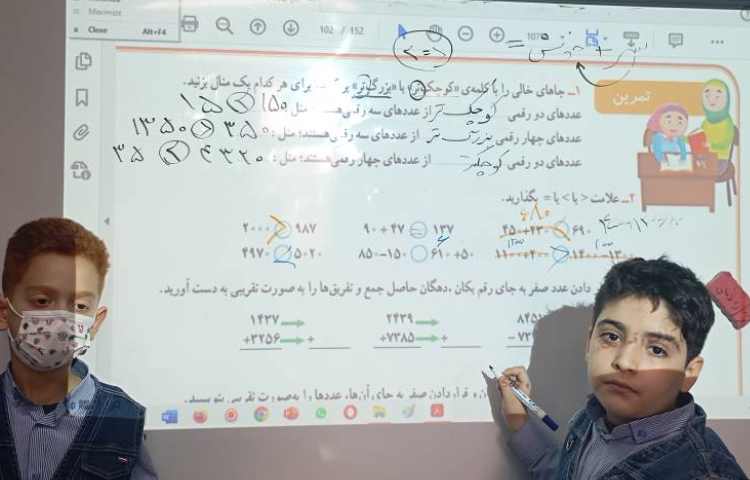 Maximize
Close Alt+F4
102 / 152
تمرین
۱ـ جاهای خالی را با کلمه‌ی «کوچک‌تر» یا «بزرگ‌تر» پر کنید. برای هر کدام یک مثال بزنید.
عددهای دو رقمی کوچک تر از عددهای سه رقمی هستند؛ مثل: ۱۵۰ > ۱۵
عددهای چهار رقمی بزرگ تر از عددهای سه رقمی هستند؛ مثل: ۳۵۰ < ۱۳۵۰
عددهای دو رقمی کوچکتر از عددهای چهار رقمی هستند؛ مثل: ۴۳۲۰ > ۳۵
۲ـ علامت < یا > یا = بگذارید.
۶۸۰
۲۰۰۰ > ۹۸۷ ۹۰+۴۷ = ۱۳۷ ۴۵۰+۲۳۰ ۶۹۰
۴۹۷۰ ۵۰۲۰ ۸۵۰-۱۵۰ ۶۱۰+۵۰ ۱۱۰۰+۲۰۰ ۱۴۰۰-۱۳۰۰
دادن عدد صفر به جای رقم یکان، دهگان حاصل جمع و تفریق‌ها را به صورت تقریبی به دست آورید.
۱۴۳۷ ۲۴۳۹ ۸۴۵
+۳۲۵۶ + +۷۳۸۵ + -۷۳
قرار دادن صفر به جای آن‌ها، عددها را به‌صورت تقریبی بنویسید.